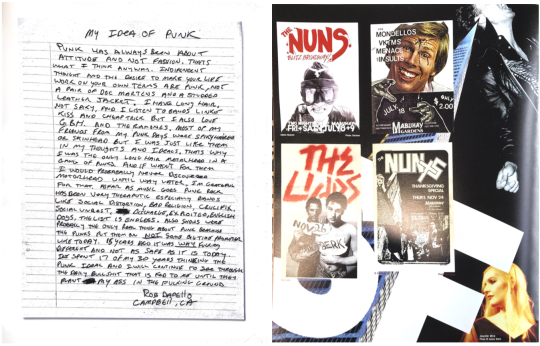 MY IDEA OF PUNK
PUNK HAS ALWAYS BEEN ABOUT
ATTITUDE AND NOT FASHION. THATS
WHAT I THINK ANYWAY. INDEPENDENT
THOUGHT AND THE DESIRE TO MAKE YOUR LIFE
WORK ON YOUR OWN TERMS ARE PUNK, NOT
A PAIR OF DOC MARTENS AND A STUDDED
LEATHER JACKET. I HAVE LONG HAIR,
NOT SPIKY, AND I LISTEN TO BANDS LIKE
KISS AND CHEAP TRICK BUT I ALSO LOVE
G.B.H. AND THE RAMONES. MOST OF MY
FRIENDS FROM MY PUNK DAYS WERE
OR SKINHEAD BUT I WAS JUST LIKE THEM
IN MY THOUGHTS AND IDEALS, THATS WHY
I WAS THE ONLY LONG HAIR METALHEAD IN A
GANG OF PUNKS. AND IF WASN'T FOR THEM
I WOULD PROBABLY NEVER DISCOVERED
MOTORHEAD UNTIL WAY LATER, I'M GRATEFUL
FOR THAT. AS FAR AS MUSIC GOES PUNK ROCK
HAS BEEN VERY THERAPEUTIC ESPECIALLY BANDS
LIKE SOCIAL DISTORTION, BAD RELIGION, CRUCIFIX,
SOCIAL UNREST, DISCHARGE, EXPLOITED, ENGLISH
DOGS, THE LIST IS ENDLESS. ALSO SHOWS WERE
PROBABLY THE ONLY REAL THING ABOUT PUNK BECAUSE
THE PUNKS PUT THEM ON NOT SOME PROMOTER
LIKE TODAY. 15 YEARS AGO IT WAS WAY FUCKING
DIFFERENT AND NOT AS SAFE AS IT IS TODAY.
IVE SPENT 17 OF MY 30 YEARS THINKING THE
PUNK IDEAL AND I WILL CONTINUE TO SEE THROUGH
THE DAILY BULLSHIT THAT IS FED TO ME UNTIL THEY
PLANT MY ASS IN THE FUCKING GROUND
ROB DAPELLO
CAMPBELL, CA
THE
NUNS
FRI+SAT JULY 8+9
THE
MONDELLOS
VKTMS
MENACE
INSULTS
JULY 18
2.00
MABUHAY
GARDENS
THE
LIONS
NOV 26
BERK
NUNS
THANKSGIVING
SPECIAL
THURS NOV 24
MABUHAY